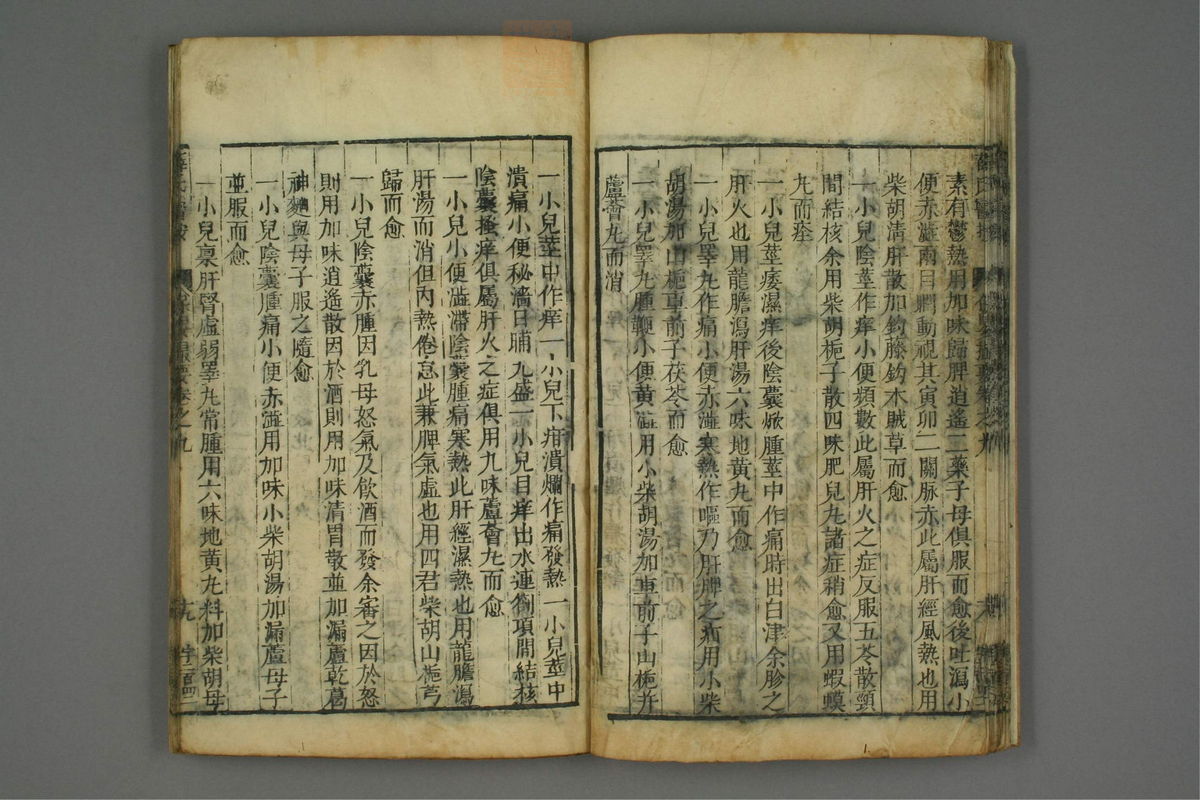 素有鬱熱用加味歸脾逍遙二藥子母俱服而愈後吐瀉小
便赤澁兩目瞤動視其寅卯二關脉赤此屬肝經風熱也用
柴胡清肝散加鈎藤鈎木賊草而愈
一小兒陰莖作痒小便頻數此屬肝火之症反服五苓散頸
間結核余用柴胡梔子散四味肥兒丸諸症稍愈又用蝦蟆
丸而痊
一小兒莖痿濕痒後陰囊焮腫莖中作痛時出白津余胗之
肝火也用龍膽瀉肝湯六味地黃丸而愈
一小兒睪丸作痛小便赤澁寒熱作嘔乃肝脾之疝用小柴
胡湯加山梔車前子茯苓而愈
一小兒睪丸腫鞕小便黃澁用小柴胡湯加車前子山梔并
蘆薈丸而消
一小兒莖中作痒一小兒下疳潰爛作痛發熱一小兒莖中
潰痛小便秘濇日晡尢盛一小兒目痒出水連劄項間結核
陰囊搔痒俱屬肝火之症俱用九味蘆薈丸而愈
一小兒小便澁滯陰囊腫痛寒熱此肝經濕熱也用龍膽瀉
肝湯而消但內熱倦怠此兼脾氣虛也用四君柴胡山梔芎
歸而愈
一小兒陰囊赤腫因乳母怒氣及飮酒而發余審之因於怒
則用加味逍遙散因於酒則用加味清胃散並加漏蘆乾葛
神麯與母子服之隨愈
一小兒陰囊腫痛小便赤澁用加味小柴胡湯加漏蘆母子
並服而愈
一小兒稟肝腎虛弱睪丸常腫用六味地黃丸料加柴胡母
卷之九
十九